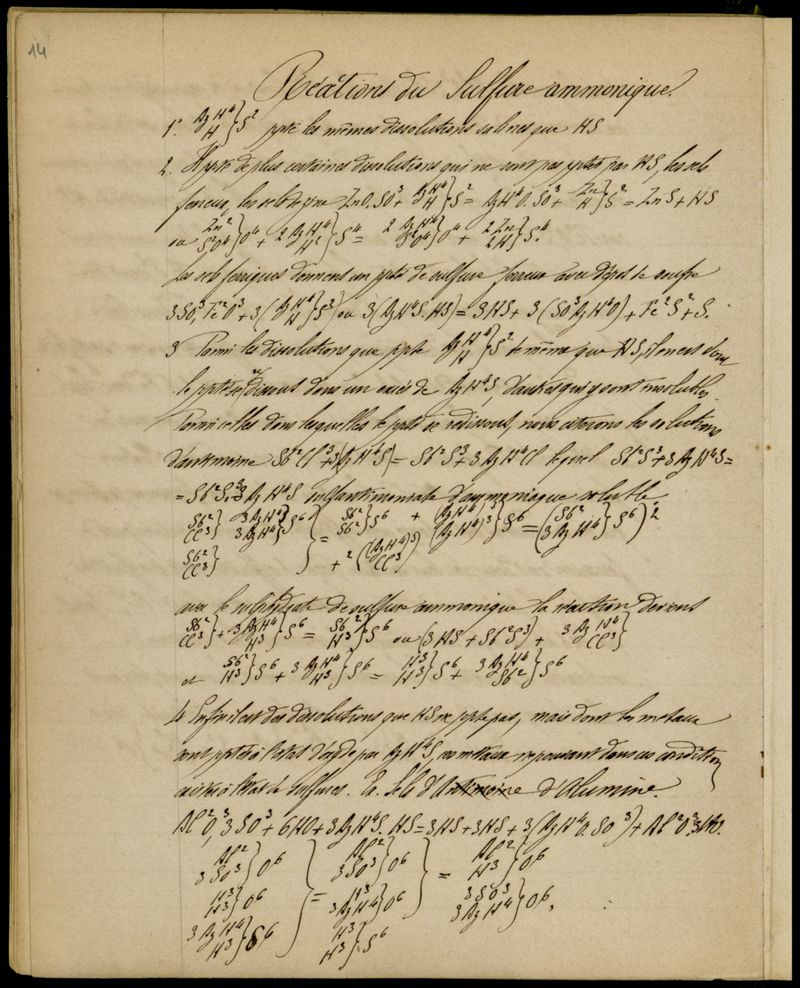 14
Réactions du Sulfure ammonique.
1° AzH⁴ H } S² ppte les mêmes dissolutions salines que HS
2. Il ppte de plus certaines dissolutions qui ne sont pas pptées par HS, les sels
ferreux, les sels de zinc ZnO.SO³ + AzH⁴ H } S² = AzH⁴O.SO³ + Zn H } S² = ZnS + HS
ou Zn² S²O⁴ } O⁴ + 2 AzH⁴ H² } S⁴ = 2 AzH⁴ S²O⁴ } O⁴ + 2 Zn 2 H } S⁴.
Les sels ferriques donnent un ppté de sulfure ferreux avec dépôt de soufre
3SO³, Fe²O³ + 3 ( AzH⁴ H } S² ) ou 3(AzH⁴S.HS) = 3HS + 3(SO³AzH⁴O) + Fe²S² + S.
3 Parmi les dissolutions que ppte AzH⁴ H } S² de même que HS, il en est dont
le ppté se dissout dans un excès de AzH⁴S, d'autres qui y sont insolubles.
Parmi celles dans lesquelles le ppté se redissout, nous citerons les solutions
d'antimoine Sb²Cl³ + 3(AzH⁴S) = Sb²S³ + 3AzH⁴Cl lequel Sb²S³ + 3AzH⁴S =
= Sb²S³.3AzH⁴S sulfantimoniate d'ammoniaque soluble.
Sb² Cl³ } 3AzH⁴ 3AzH⁴ } S⁶ } = Sb² Sb² } S⁶ + (AzH⁴)³ (AzH⁴)³ } S⁶ = ( Sb² 3AzH⁴ } S⁶ )²
Sb² Cl³ } + 2 ( (AzH⁴)³ Cl³ )
avec le sulfhydrate de sulfure ammonique la réaction devient
Sb² Cl³ } + 3AzH⁴ H³ } S⁶ = Sb² H³ } S⁶ ou (3HS + Sb²S³) + 3AzH⁴ Cl³ }
et Sb² H³ } S⁶ + 3AzH⁴ H³ } S⁶ = H³ H³ } S⁶ + 3AzH⁴ Sb² } S⁶
4 Enfin il est des dissolutions que HS ne ppte pas, mais dont les métaux
sont pptés à l'état d'oxyde par AzH⁴S, ces métaux ne pouvant dans ces conditions
exister à l'état de sulfures. Ex. Sels d'Alumine.
Al²O³, 3SO³ + 6HO + 3AzH⁴S.HS = 3HS + 3HS + 3(AzH⁴O.SO³) + Al²O³.3HO.
Al² 3SO³ } O⁶ } Al² 3SO³ } O⁶ } Al² H³ } O⁶
H³ H³ } O⁶ } = H³ 3AzH⁴ } O⁶ } = 3SO³ 3AzH⁴ } O⁶,
3AzH⁴ H³ } S⁶ } H³ H³ } S⁶